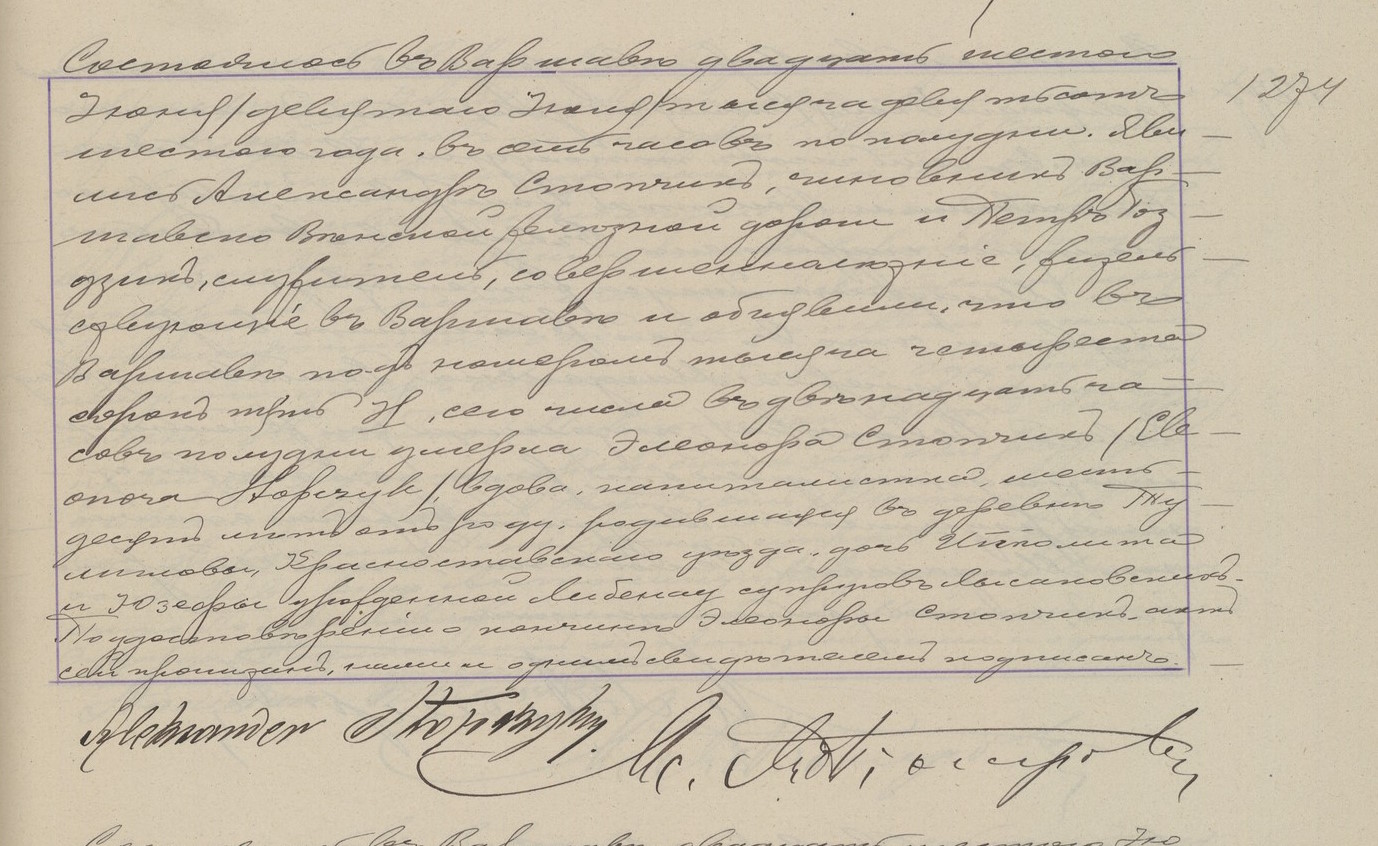 Состоялось въ Варшавѣ двадцать шестого
1274
Іюня /девятаго Іюля/ тысяча девятьсотъ
шестого года. въ семь часовъ по полудни. Яви
лись Александръ Стопчикъ, чиновникъ Вар-
шавско Вѣнской желѣзной дороги и Петръ Гоз
дзикъ, служитель, совершеннолѣтніе, житель
ствующіе въ Варшавѣ и объявили, что въ
Варшавѣ подъ номеромъ тысяча четыреста
сорокъ три Н, сего числа въ двѣнадцать ча-
совъ полудни умерла Элеонора Стопчикъ /Ele
onora Stopczyk/, вдова, капиталистка, шесть-
десятъ лѣтъ отъ роду, родившаяся въ деревнѣ
Красноставскаго уѣзда, дочь Ипполита
и Юзефы урожденной Либенау супруговъ
По удостовѣреніи о кончинѣ Элеоноры Стопчикъ, актъ
сей прочитанъ, нами и однимъ свидѣтелемъ подписанъ.
Aleksander Stopczyk
Состоялось въ Варшавѣ двадцать шестого Ію